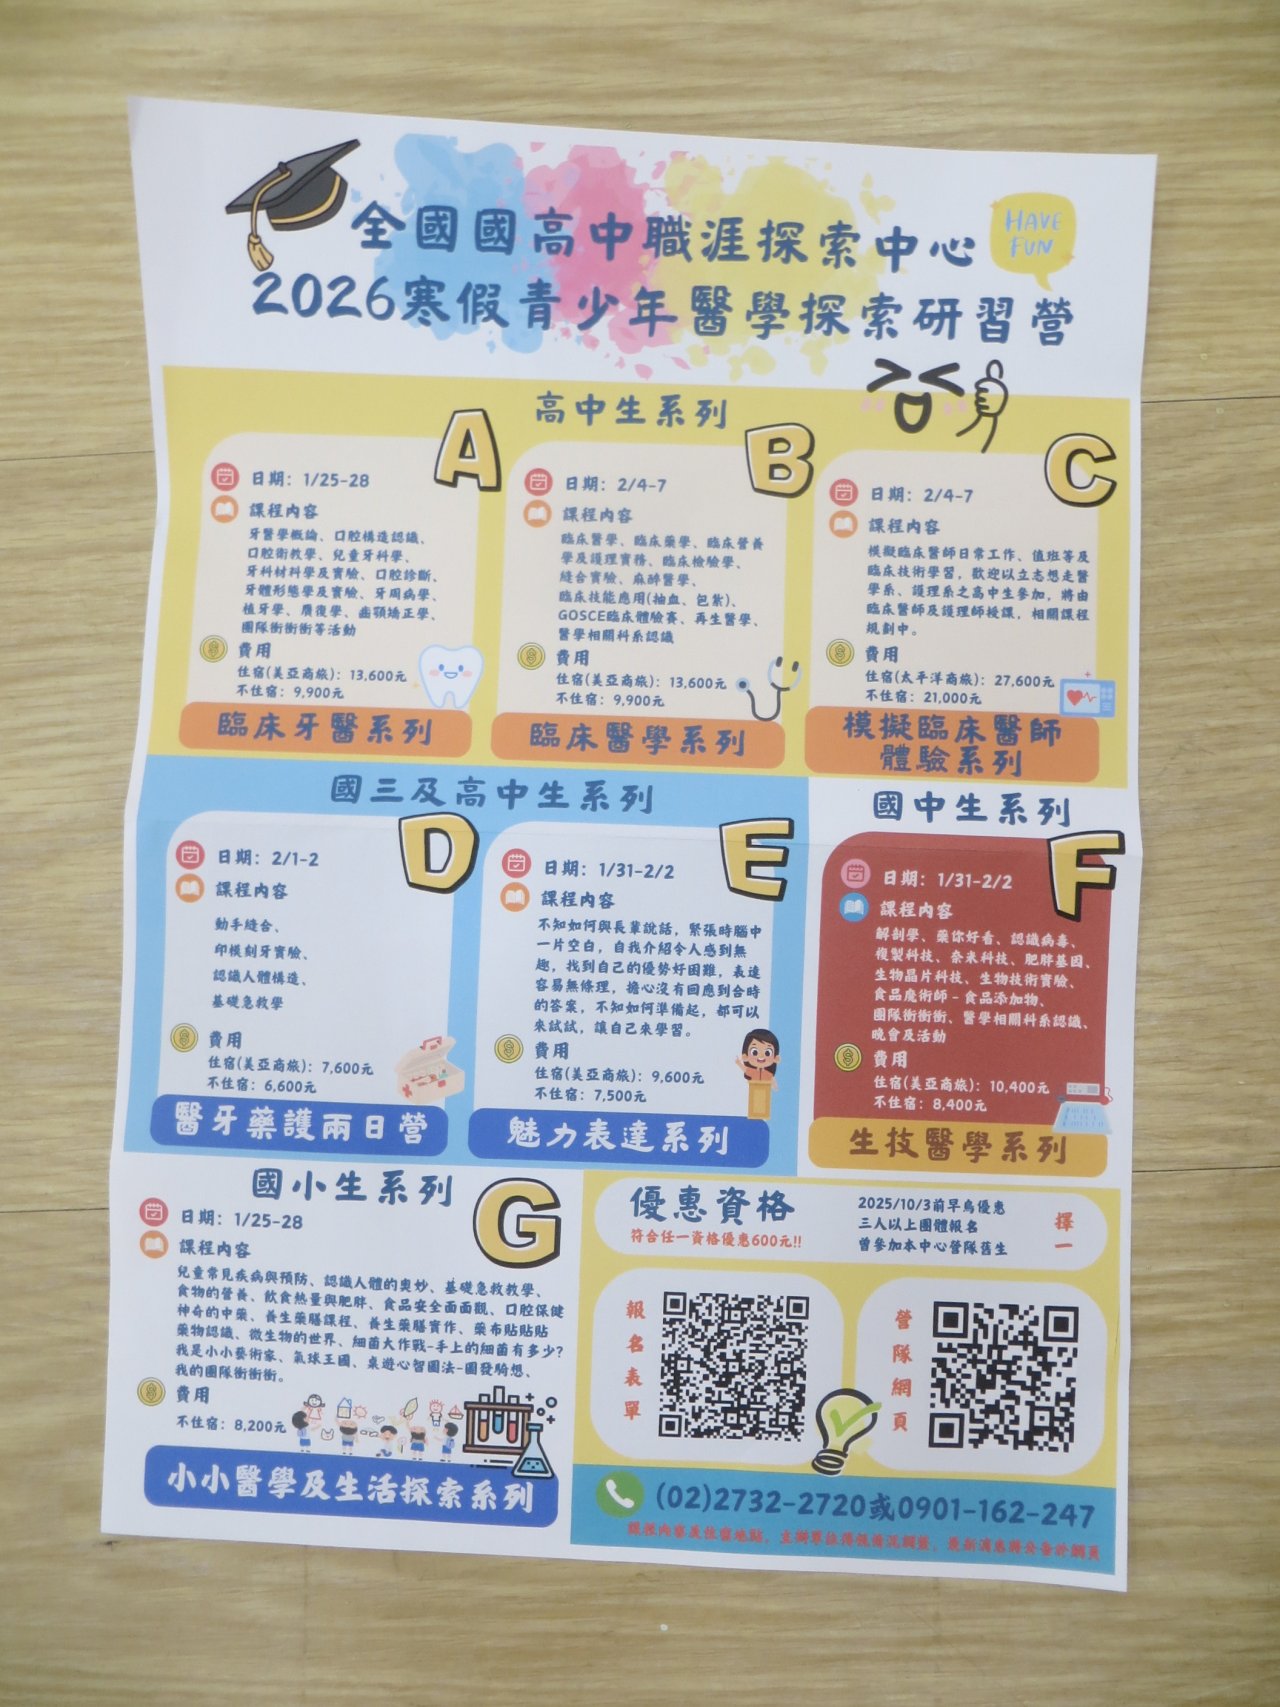 全國國高中職涯探索中心
HAVE
FUN
2026寒假青少年醫學探索研習營
高中生系列
A
日期：1/25-28
課程內容
牙醫學概論、口腔構造認識、
口腔衛教學、兒童牙科學、
牙科材料學及實驗、口腔診斷、
牙體形態學及實驗、牙周病學、
植牙學、贋復學、齒顎矯正學、
團隊衝衝衝等活動
費用
住宿(美亞商旅)：13,600元
不住宿：9,900元
臨床牙醫系列
B
日期：2/4-7
課程內容
臨床醫學、臨床藥學、臨床營養
學及護理實務、臨床檢驗學、
縫合實驗、麻醉醫學、
臨床技能應用(抽血、包紮)、
GOSCE臨床體驗賽、再生醫學、
醫學相關科系認識
費用
住宿(美亞商旅)：13,600元
不住宿：9,900元
臨床醫學系列
C
日期：2/4-7
課程內容
模擬臨床醫師日常工作、值班等及
臨床技術學習，歡迎以立志想走醫
學系、護理系之高中生參加，將由
臨床醫師及護理師授課，相關課程
規劃中。
費用
住宿(太平洋商旅)：27,600元
不住宿：21,000元
模擬臨床醫師
體驗系列
國三及高中生系列
D
日期：2/1-2
課程內容
動手縫合、
印模刻牙實驗、
認識人體構造、
基礎急救學
費用
住宿(美亞商旅)：7,600元
不住宿：6,600元
醫牙藥護兩日營
E
日期：1/31-2/2
課程內容
不知如何與長輩說話，緊張時腦中
一片空白，自我介紹令人感到無
趣，找到自己的優勢好困難，表達
容易無條理，擔心沒有回應到合時
的答案，不知如何準備起，都可以
來試試，讓自己來學習。
費用
住宿(美亞商旅)：9,600元
不住宿：7,500元
魅力表達系列
國中生系列
F
日期：1/31-2/2
課程內容
解剖學、藥你好看、認識病毒、
複製科技、奈米科技、肥胖基因、
生物晶片科技、生物技術實驗、
食品魔術師-食品添加物、
團隊衝衝衝、醫學相關科系認識、
晚會及活動
費用
住宿(美亞商旅)：10,400元
不住宿：8,400元
生技醫學系列
國小生系列
G
日期：1/25-28
課程內容
兒童常見疾病與預防、認識人體的奧妙、基礎急救教學、
食物的營養、飲食熱量與肥胖、食品安全面面觀、口腔保健
神奇的中藥、養生藥膳課程、養生藥膳實作、藥布貼貼貼
藥物認識、微生物的世界、細菌大作戰-手上的細菌有多少?
我是小小藝術家、氣球王國、桌遊心智圖法-圖發騎想、
我的團隊衝衝衝。
費用
不住宿：8,200元
小小醫學及生活探索系列
優惠資格
符合任一資格優惠600元!!
2025/10/3前早鳥優惠
三人以上團體報名
曾參加本中心營隊舊生
擇一
報名表單
營隊網頁
(02)2732-2720或0901-162-247
課程內容及住宿地點，主辦單位得視情況調整，最新消息將公告於網頁